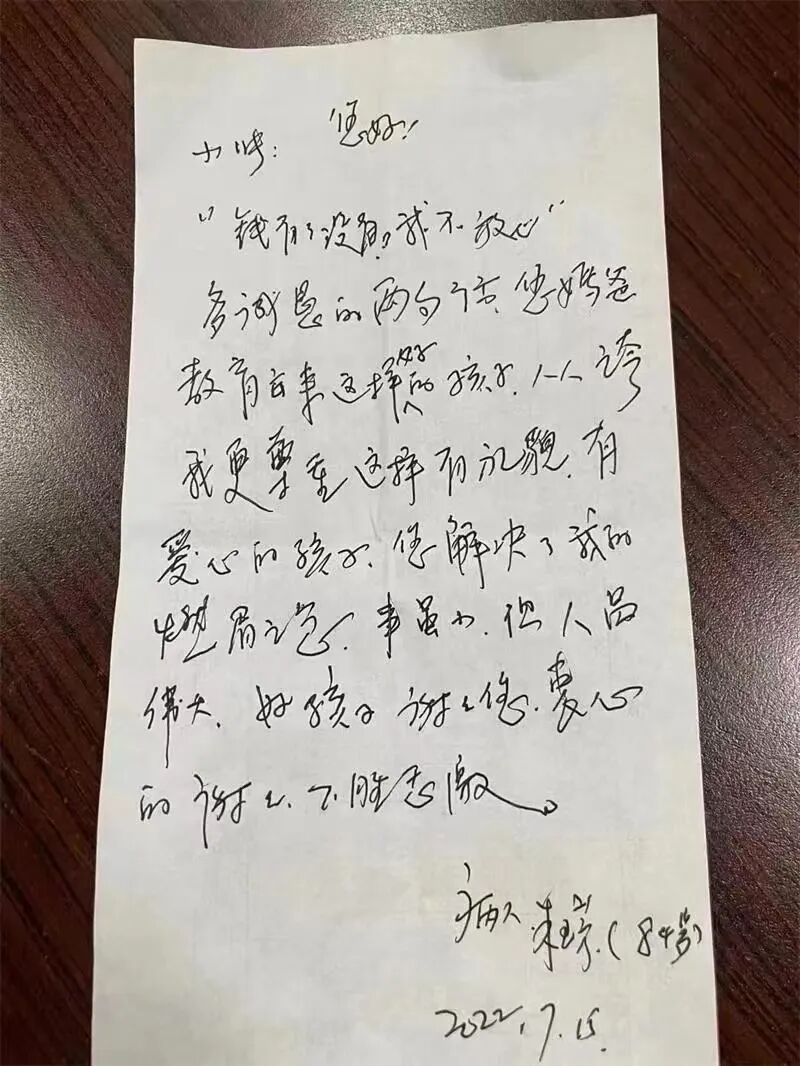 小帅： 您好！
“钱有了没有？我不放心”
多诚恳的两句话，您妈爸
教育出来这样好的孩子，人人夸
我更尊重这样有礼貌、有
爱心的孩子，您解决了我的
燃眉之急，事虽小，但人品
伟大，好孩子谢谢您，衷心
的谢谢、不胜感激。
病人 朱(84岁)
2022.7.15